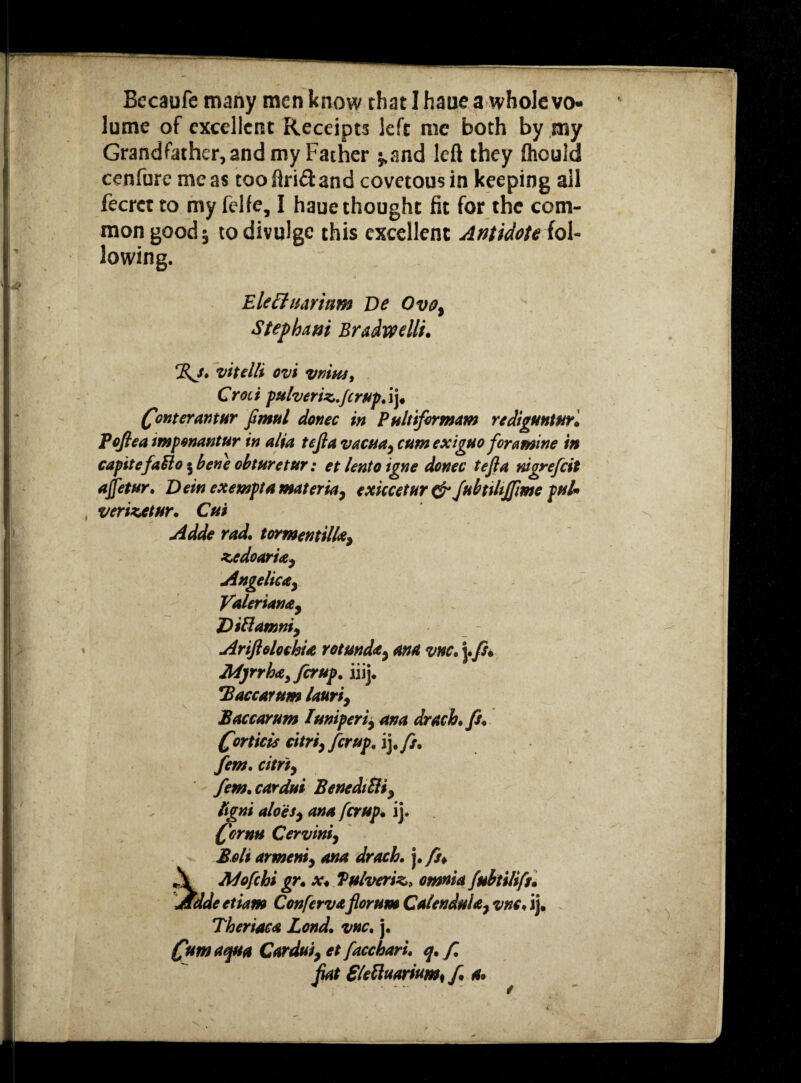 Becauſe many men know that I haue a whole vo-
lume of excellent Receipts left me both by my
Grandfather, and my Father ; and leſt they ſhould
cenſure me as too ſtrict and covetous in keeping all
ſecret to my ſelfe, I haue thought fit for the com-
mon good; to divulge this excellent Antidote fol-
lowing.
Electuarium De Ovo,
Stephani Bradwelli.
Rs. vitelli ovi vnius,
Croci pulveriz. ſcrup. ij.
Conterantur ſimul donec in Pultiſormam rediguntur.
Poſtea imponantur in alia teſta vacua, cum exiguo foramine in
capite facto; bene obturetur: et lento igne donec teſta nigreſcit
aſſetur. Dein exempta materia, exiccetur & ſubtiliſſime pul-
verizetur. Cui
Adde rad. tormentillæ,
zedoariæ,
Angelicæ,
Valerianæ,
Dictamni,
Ariſtolochiæ rotundæ, ana vnc. j. ſs.
Myrrhæ, ſcrup. iiij.
Baccarum lauri,
Baccarum Iuniperi, ana drach. ſs.
Corticis citri, ſcrup. ij. ſs.
ſem. citri,
ſem. cardui Benedicti,
ligni aloës, ana ſcrup. ij.
Cornu Cervini,
Boli armeni, ana drach. j. ſs.
Moſchi gr. x. Pulveriz, omnia ſubtiliſs.
Adde etiam Conſervæ florum Calendulæ, vnc. ij.
Theriaca Lond. vnc. j.
Cum aqua Cardui, et ſacchari. q. ſ.
fiat Electuarium, ſ. a.